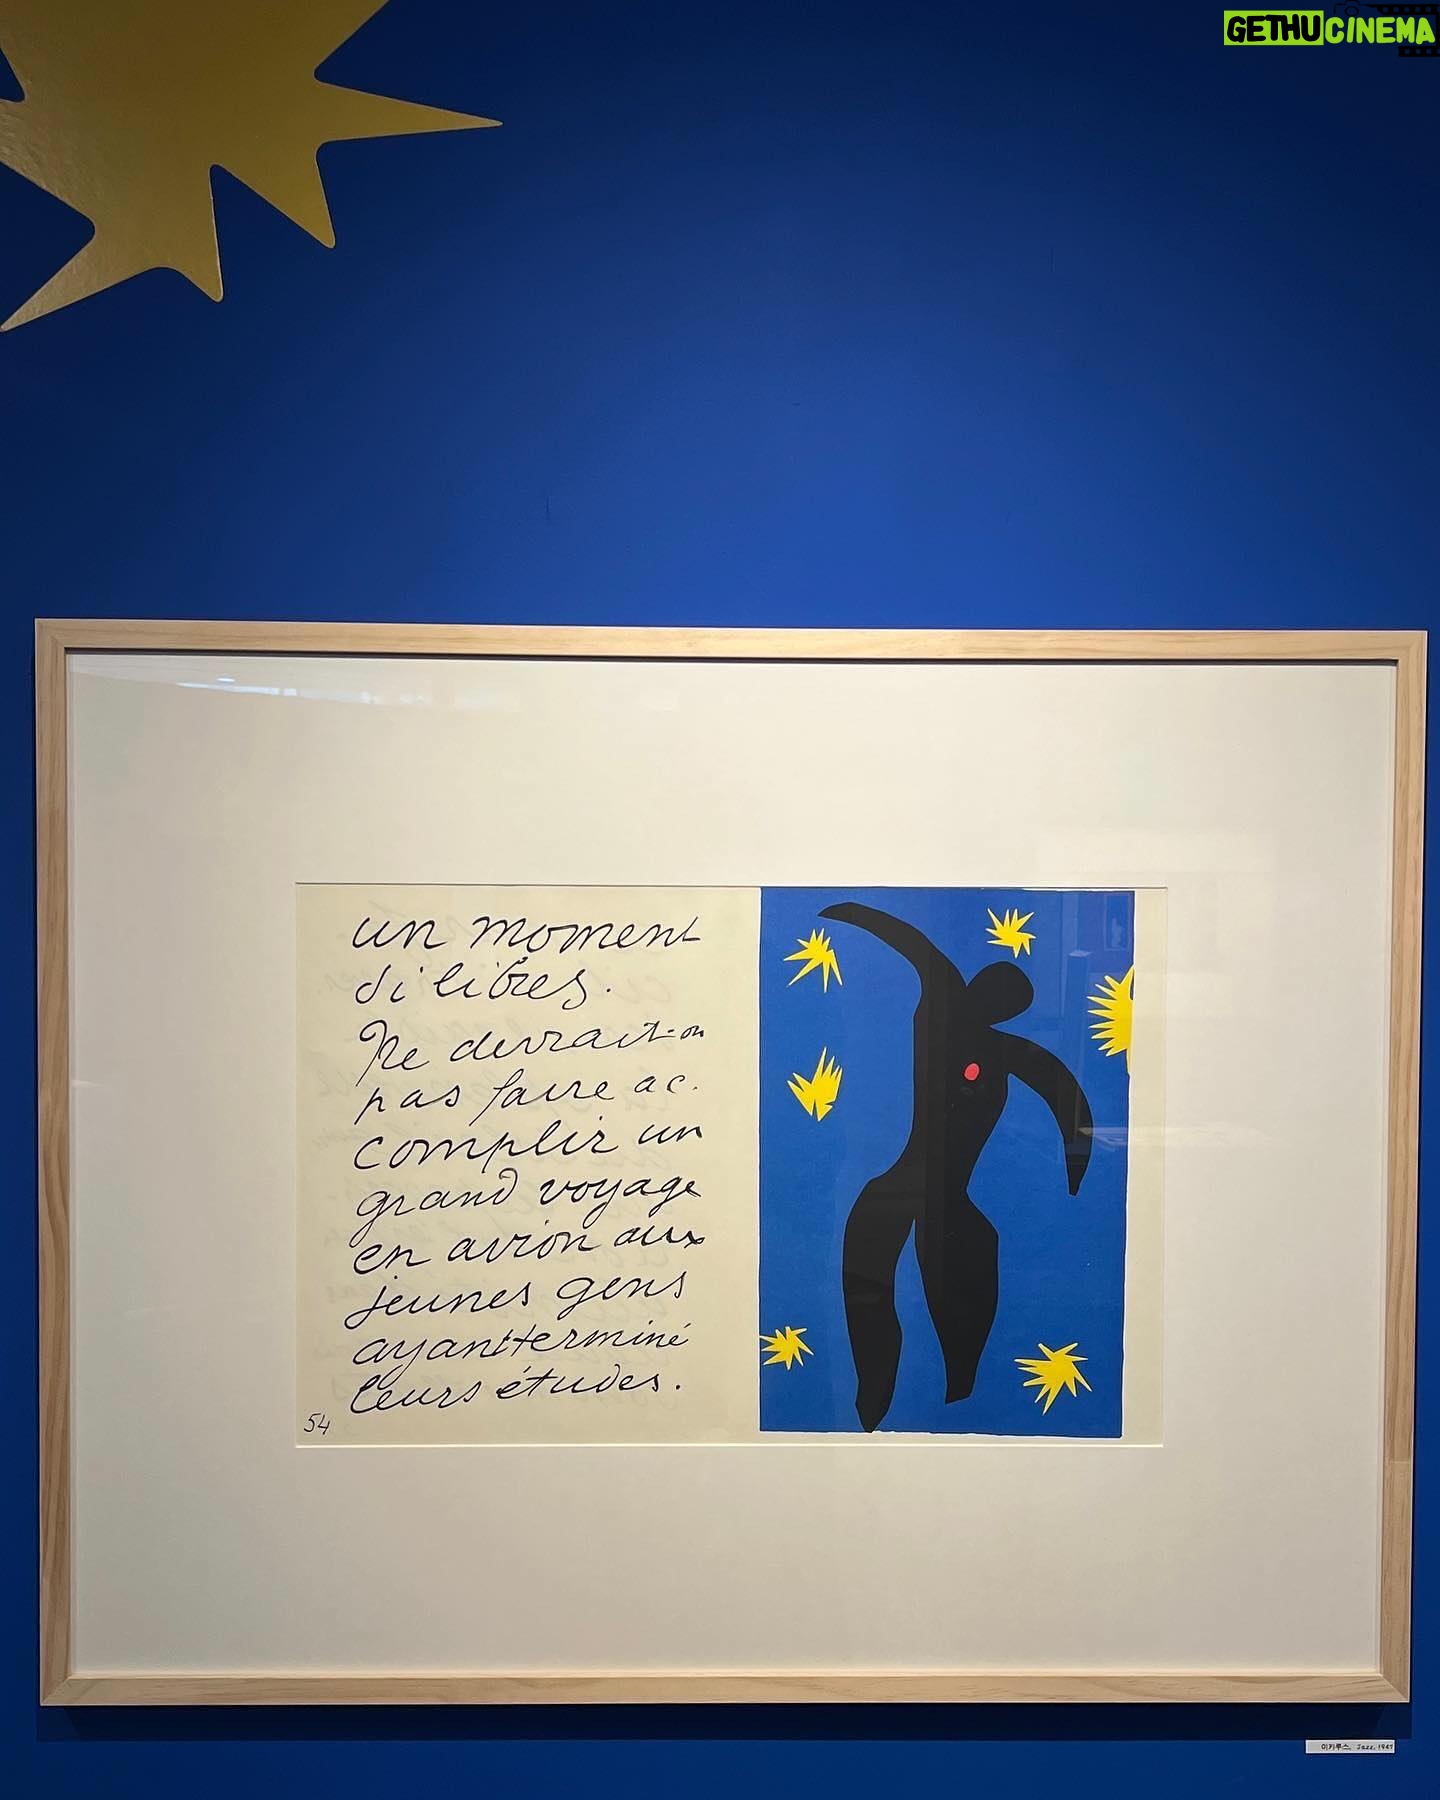 GETHUCINEMA
un moment
si libres.
Ne devrait-on
pas faire ac.
complir un
grand voyage
en avion aux
jeunes gens
ayant terminé
leurs études.
54
이카루스, Jazz, 1947